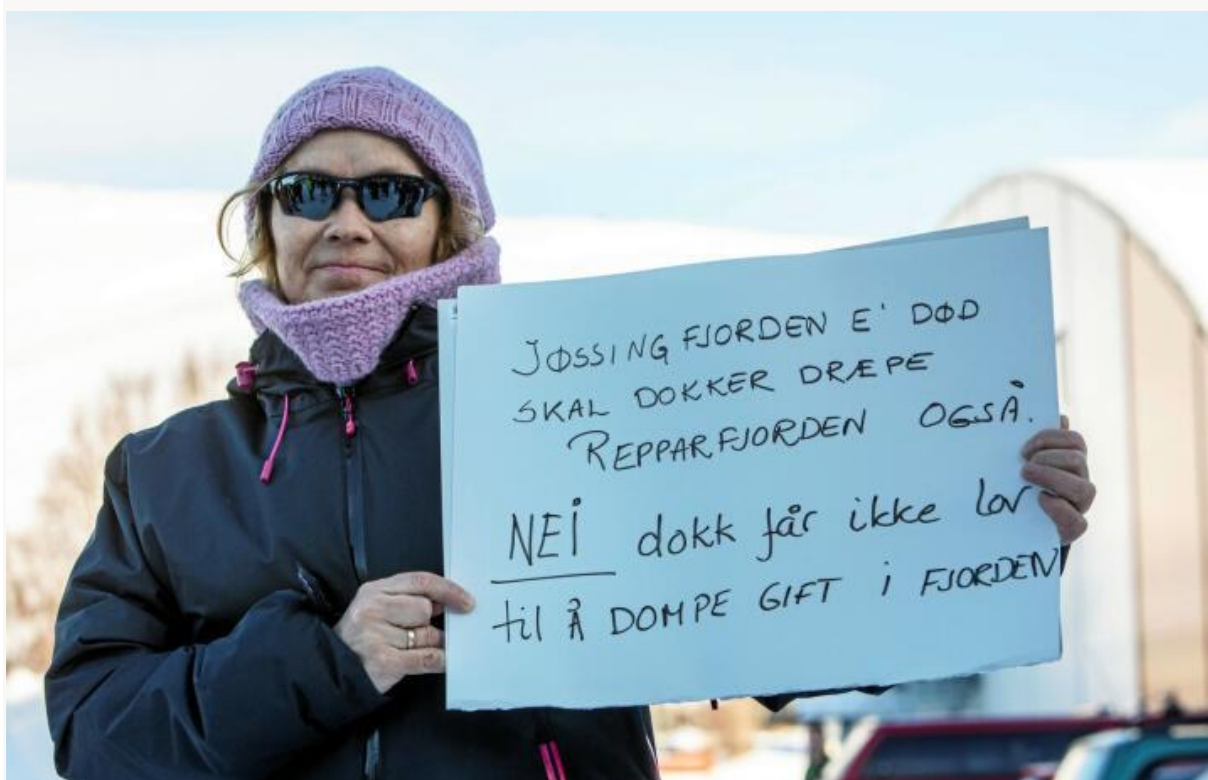 JØSSINGFJORDEN E' DØD
SKAL DOKKER DRÆPE
REPPARFJORDEN OGSÅ.
NEi dokk får ikke lov
til Å DOMPE GIFT i FJORDEN